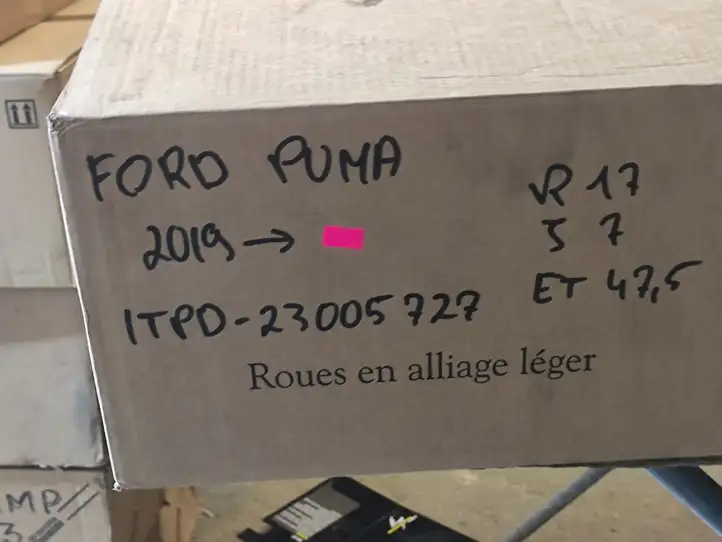 FORD PUMA
2019 →
ITPD-23005727
R 17
J 7
ET 47,5
Roues en alliage léger
MP
3